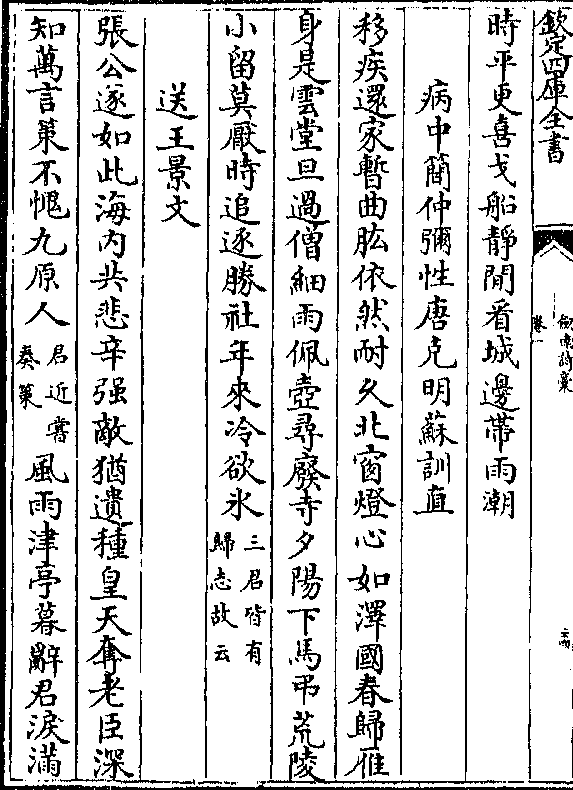 欽定四庫全書
劍南詩稾
卷一
時平更喜戈船靜閒看城邊帶雨潮
病中簡仲彌性唐克明蘇訓直
移疾還家暫曲肱依然耐久北窗燈心如澤國春歸雁
身是雲堂旦過僧細雨佩壺尋廢寺夕陽下馬弔荒陵
小留莫厭時追逐勝社年來冷欲氷三君皆有歸志故云
送王景文
張公遂如此海内共悲辛强敵猶遺種皇天奪老臣深
知萬言策不愧九原人君近嘗奏策風雨津亭暮辭君淚滿